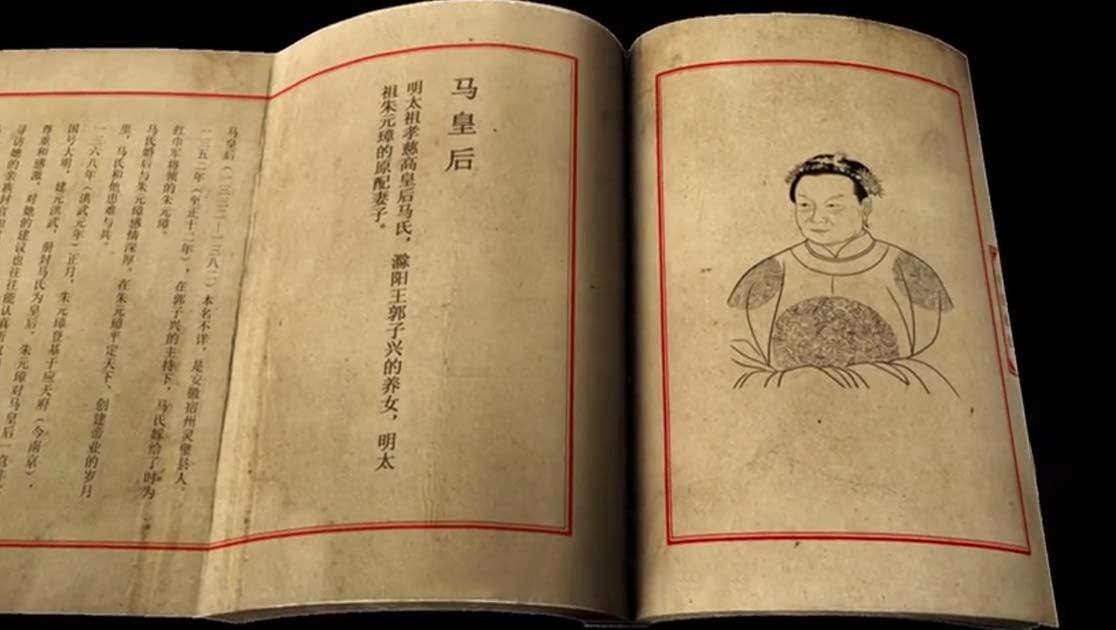 马皇后
明太祖孝慈高皇后马氏，滁阳王郭子兴的养女，明太
祖朱元璋的原配妻子。
马皇后（一三三二—一三八二）本名不详，是安徽宿州灵璧县人。
一三五二年（至正十二年），在郭子兴的主持下，马氏嫁给了时为
红巾军将领的朱元璋。
马氏婚后与朱元璋感情深厚，在朱元璋平定天下、创建帝业的岁月
里，马氏和他患难与共。
一三六八年（洪武元年）正月，朱元璋登基于应天府（今南京），
国号大明，建元洪武，册封马氏为皇后。朱元璋对马皇后一直
尊重和感激，对她的建议也往往能认真听取
寻访她的亲族封官